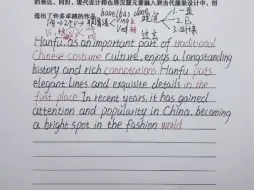 的表达。同时，现代设计师也将汉服元素融入到当代服装设计中，创
造出了许多卓越的作品。
Hanfu, as an important part of traditional
Chinese costume culture, enjoys a longstanding
history and rich connotations. Hanfu puts
elegant lines and exquisite details in
the first place. In recent years, it has gained
attention and popularity in China, becoming
a bright spot in the fashion world.